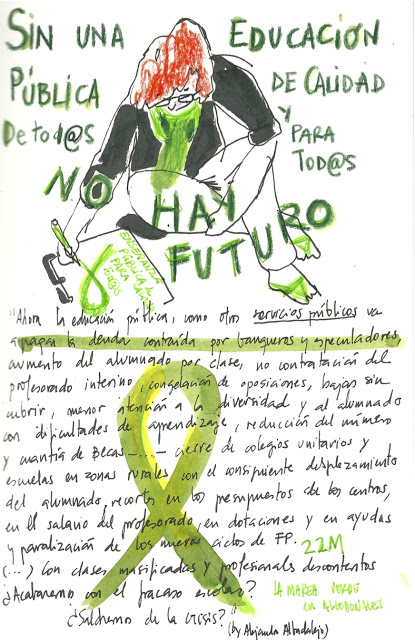 SIN UNA EDUCACIÓN
PÚBLICA DE CALIDAD
De tod@s Y PARA
TOD@S
NO HAY
FUTURO
ENSEÑANZA
PÚBLICA
PARA
TOD@S
"Ahora la educación pública, como otros servicios públicos va
a pagar la deuda contraída por banqueros y especuladores,
aumento del alumnado por clase, no contratación del
profesorado interino, congelación de oposiciones, bajas sin
cubrir, menor atención a la diversidad y al alumnado
con dificultades de aprendizaje, reducción del número
y cuantía de Becas -...- cierre de colegios unitarios y
escuelas en zonas rurales con el consiguiente desplazamiento
del alumnado, recortes en los presupuestos de los centros,
en el salario del profesorado, en dotaciones y en ayudas
y paralización de los nuevos ciclos de FP. 22M
(...) Con clases masificadas y profesionales descontentos
¿Acabaremos con el fracaso escolar? LA MAREA VERDE
EN ALGODONALES
¿Saldremos de la crisis?" (by Alejandra Albadalejo)